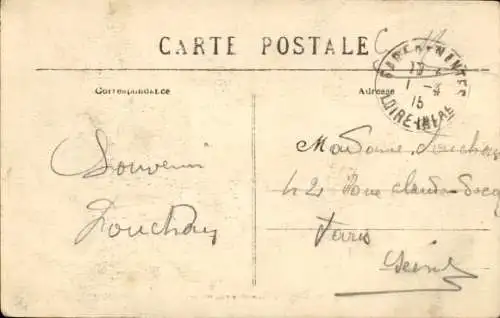 CARTE POSTALE
GARE DE NANTES
1 - 4
15
LOIRE-INFRE
Correspondance
Adresse
Souvenir
Douchay
Madame
42 Rue Claude
Paris
Seine